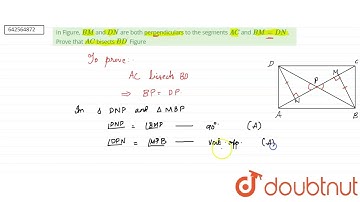 642564872
In Figure, BM and DN are both perpendiculars to the segments AC and BM = DN.
Prove that AC bisects BD Figure
To prove:
AC bisects BD
⇒ BP = DP
In Δ DNP and Δ MBP
∠DNP = ∠BMP — 90° (A)
∠DPN = ∠MPB — vert. opp. (A)
D
C
M
P
N
A
B
doubtnut